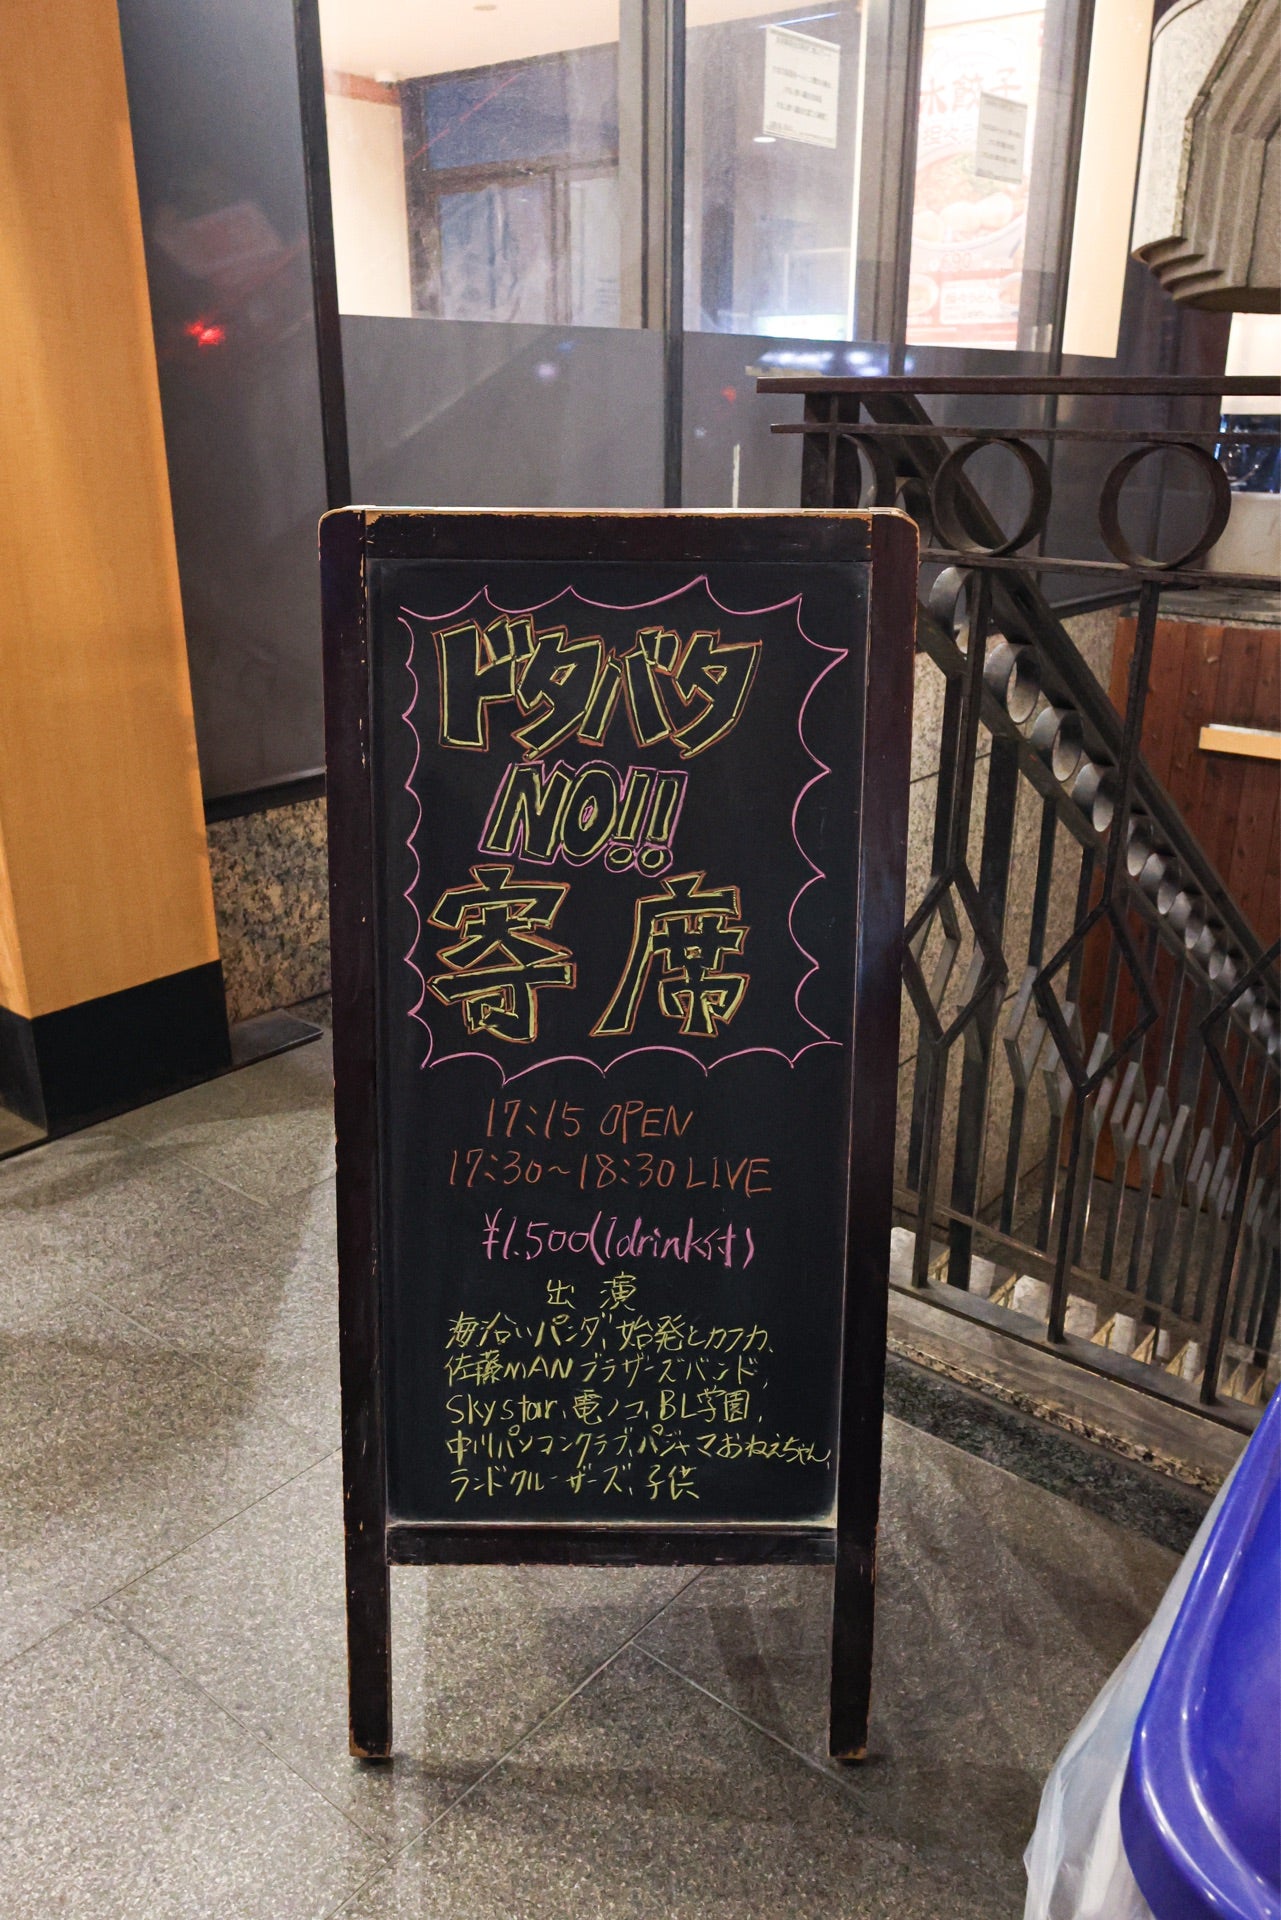 ドタバタ
NO!!
寄席
17:15 OPEN
17:30～18:30 LIVE
¥1.500(1drink付)
出演
海沿いパンダ、始発とカフカ、
佐藤MANブラザーズバンド、
Skystar、電ノコ、BL学園、
中川パソコンクラブ、パジャマおねえちゃん、
ランドクルーザーズ、子供
水餃子